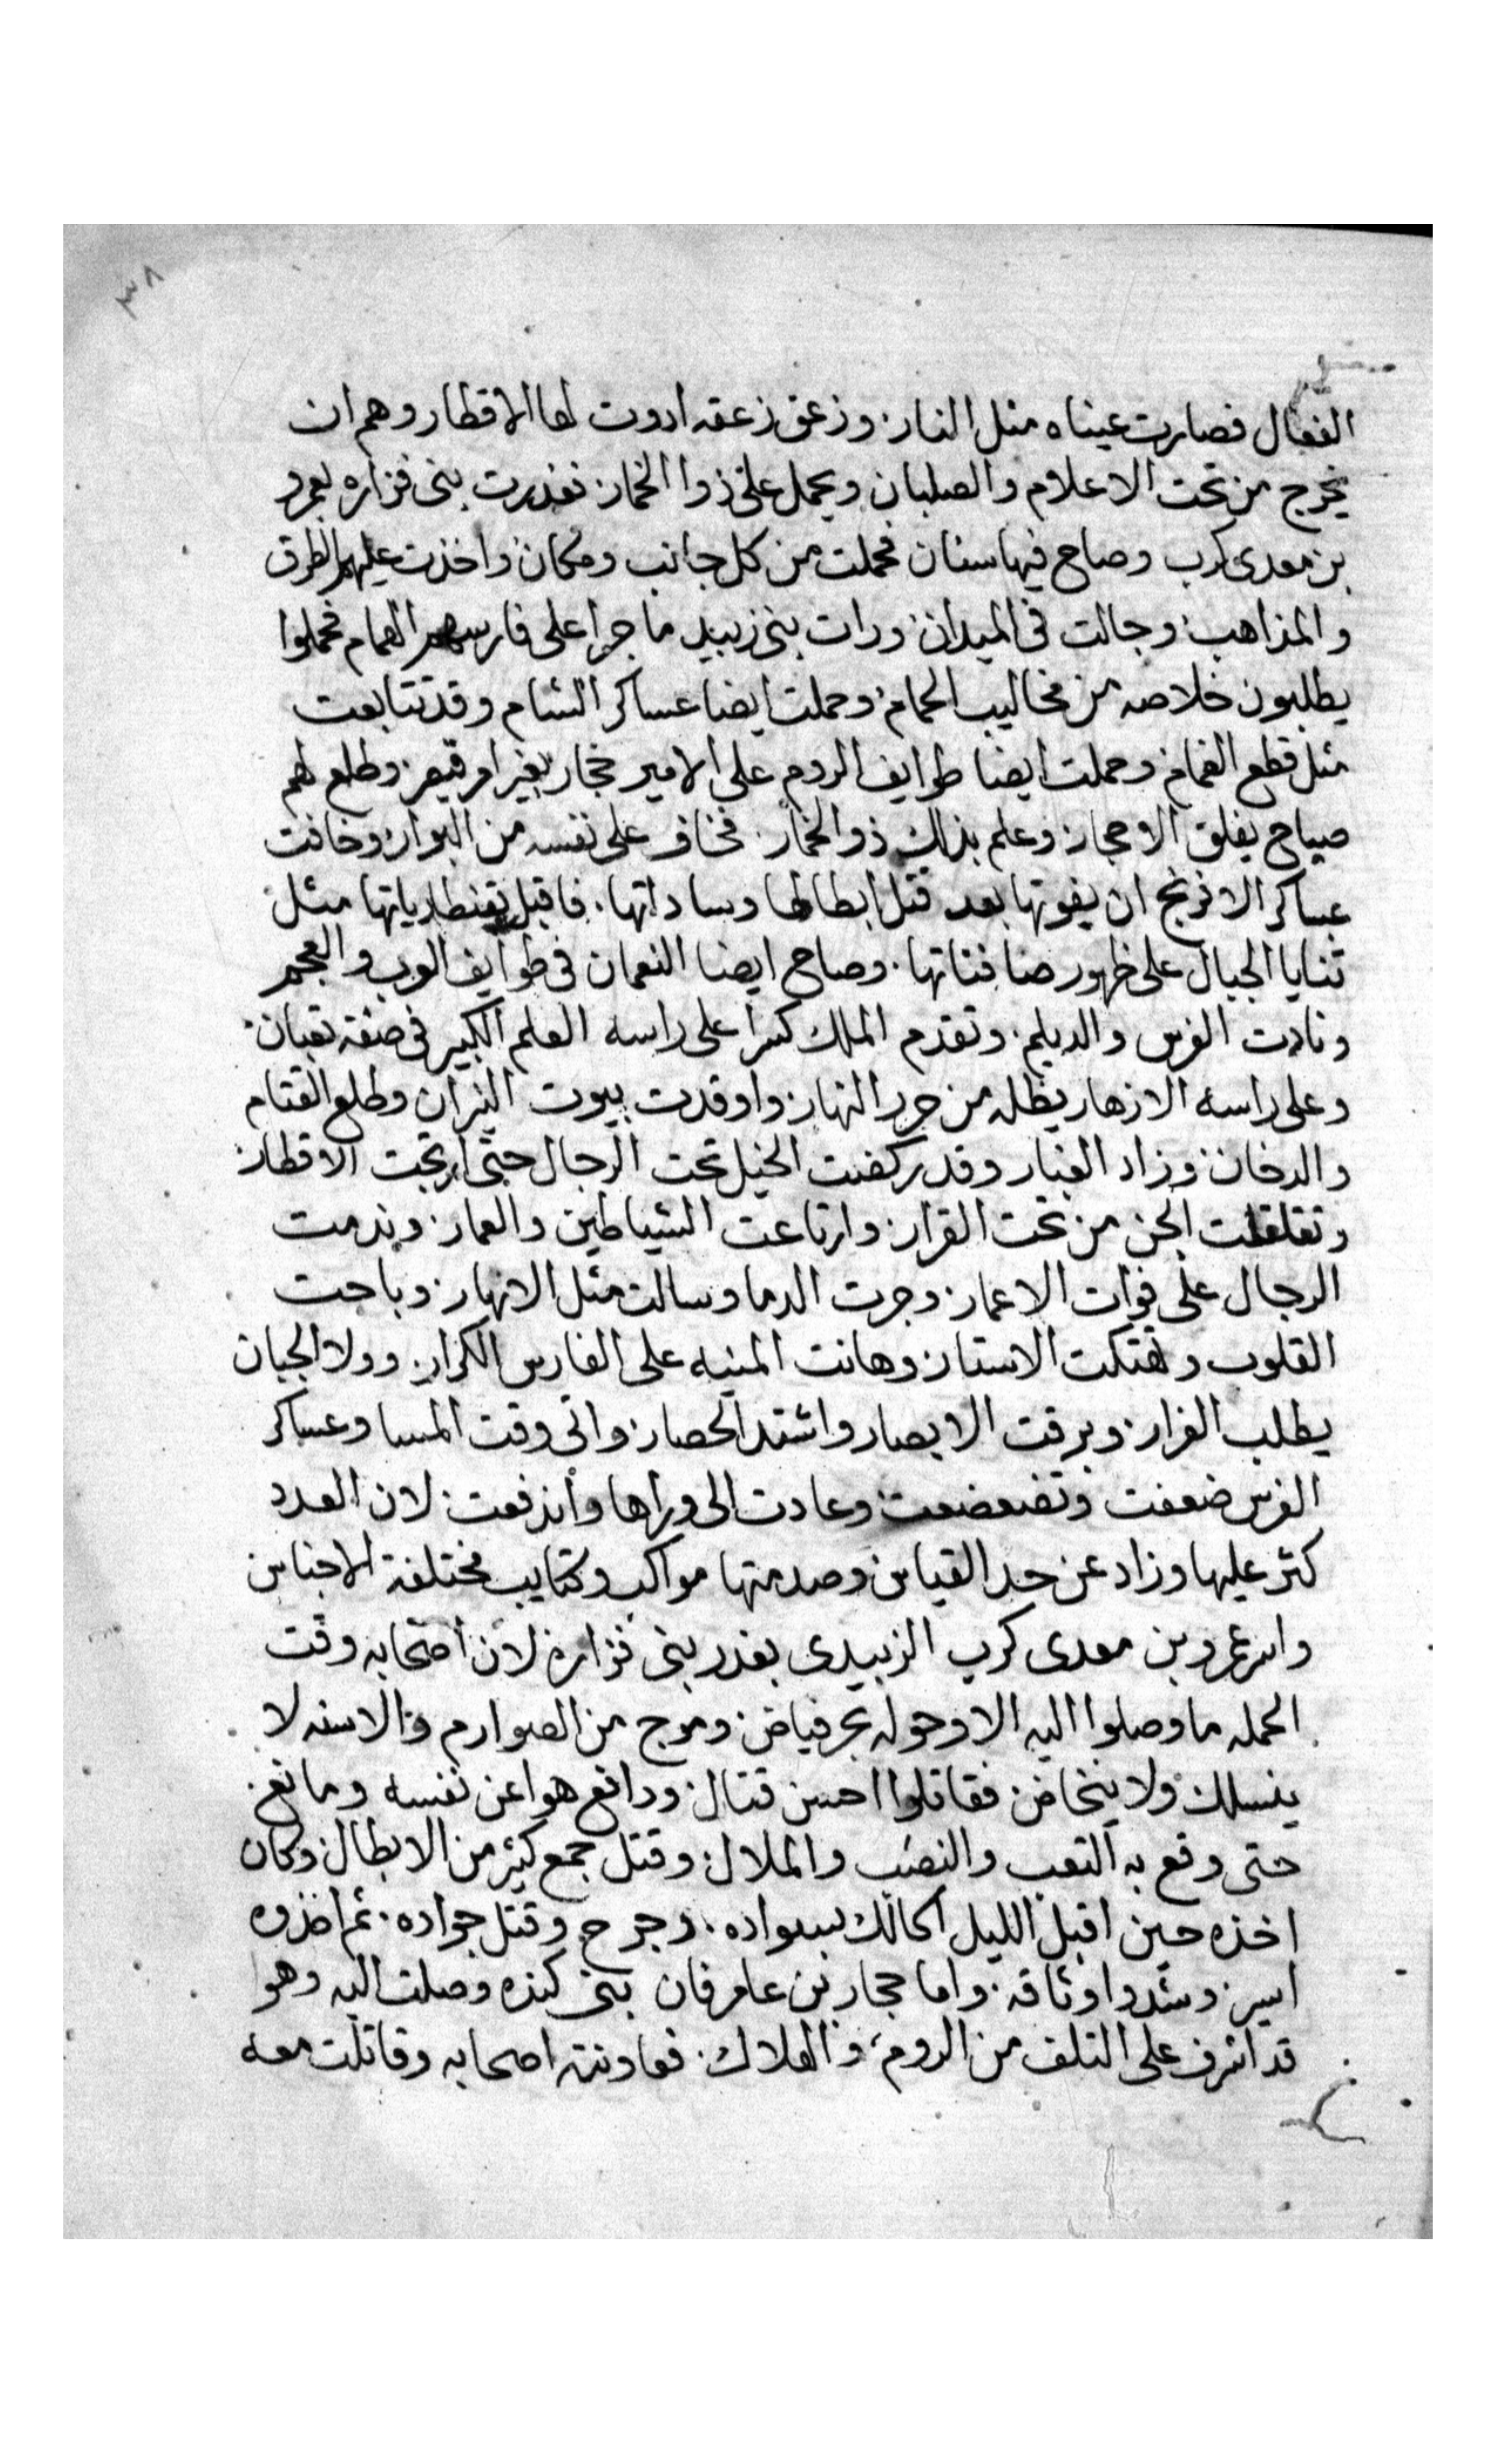 ٣٨
الفعال فصارت عيناه مثل النار. وزعق زعقه ادوت لها الاقطار وهم ان
يخرج من تحت الاعلام والصلبان ويحمل على ذوا الخمار. فغدرت بنى فزاره بعمرو
بن معدى كرب وصاح فيها سنان فحملت من كل جانب ومكان واخذت عليهم الطرق
والمذاهب وجالت فى الميدان ورات بنى زبيد ما جرا على فارسهم الهمام فحملوا
يطلبون خلاصه من مخاليب الحمام وحملت ايضا عساكر الشام وقد تتابعت
مثل قطع الغمام وحملت ايضا طوايف الروم على الامير حجار بغير امر قيصر. وطلع لهم
صياح يفلق الاحجار وعلم بذلك ذو الخمار. فخاف على نفسه من البوار وخافت
عساكر الافرنج ان يفوتها بعد قتل ابطالها وساداتها. فاقبل بقنطارياتها مثل
ثنايا الجبال على ظهور صافناتها. وصاح ايضا النعمان فى طوايف العرب والعجم
ونادت الفرس والديلم. وتقدم الملك كسرا على راسه العلم الكبير فى صفة ثعبان.
وعلى راسه الازهار يظله من حر النهار. واوقدت بيوت النيران وطلع القتام
والدخان وزاد الغبار وقد ركضت الخيل تحت الرجال حتى ارتجت الاقطار.
وتقلقلت الجن من تحت القرار. وارتاعت الشياطين والعمار. وندمت
الرجال على فوات الاعمار. وجرت الدما وسالت مثل الانهار. وباحت
القلوب وهتكت الاستار وهانت المنيه على الفارس الكرار. وولا الجبان
يطلب الفرار. وبرقت الابصار واشتد الحصار. واتى وقت المسا وعساكر
الفرس ضعفت وتضعضعت وعادت الى وراها واندفعت. لان العدد
كثر عليها وزاد عن حد القياس وصدمتها مواكب وكتايب مختلفة الاجناس
واسر عمرو بن معدى كرب الزبيدى بغدر بنى فزاره لان اصحابه وقت
الحمله ما وصلوا اليه الا وحوله بحر فياض. وموج من الصوارم والاسنه لا
ينسلك ولا ينخاض. فقاتلوا احسن قتال. ودافع هوا عن نفسه ومانع.
حتى وقع به التعب والنصب والملال. وقتل جمع كثير من الابطال وكان
اخذه حين اقبل الليل الحالك بسواده. وجرح وقتل جواده. ثم اخذوه
اسير. وشدوا وثاقه. واما حجار بن عامر فان بنى كنده وصلت اليه وهوا
قد اشرف على التلف من الروم، والهلاك. فعاونته اصحابه وقاتلت معه